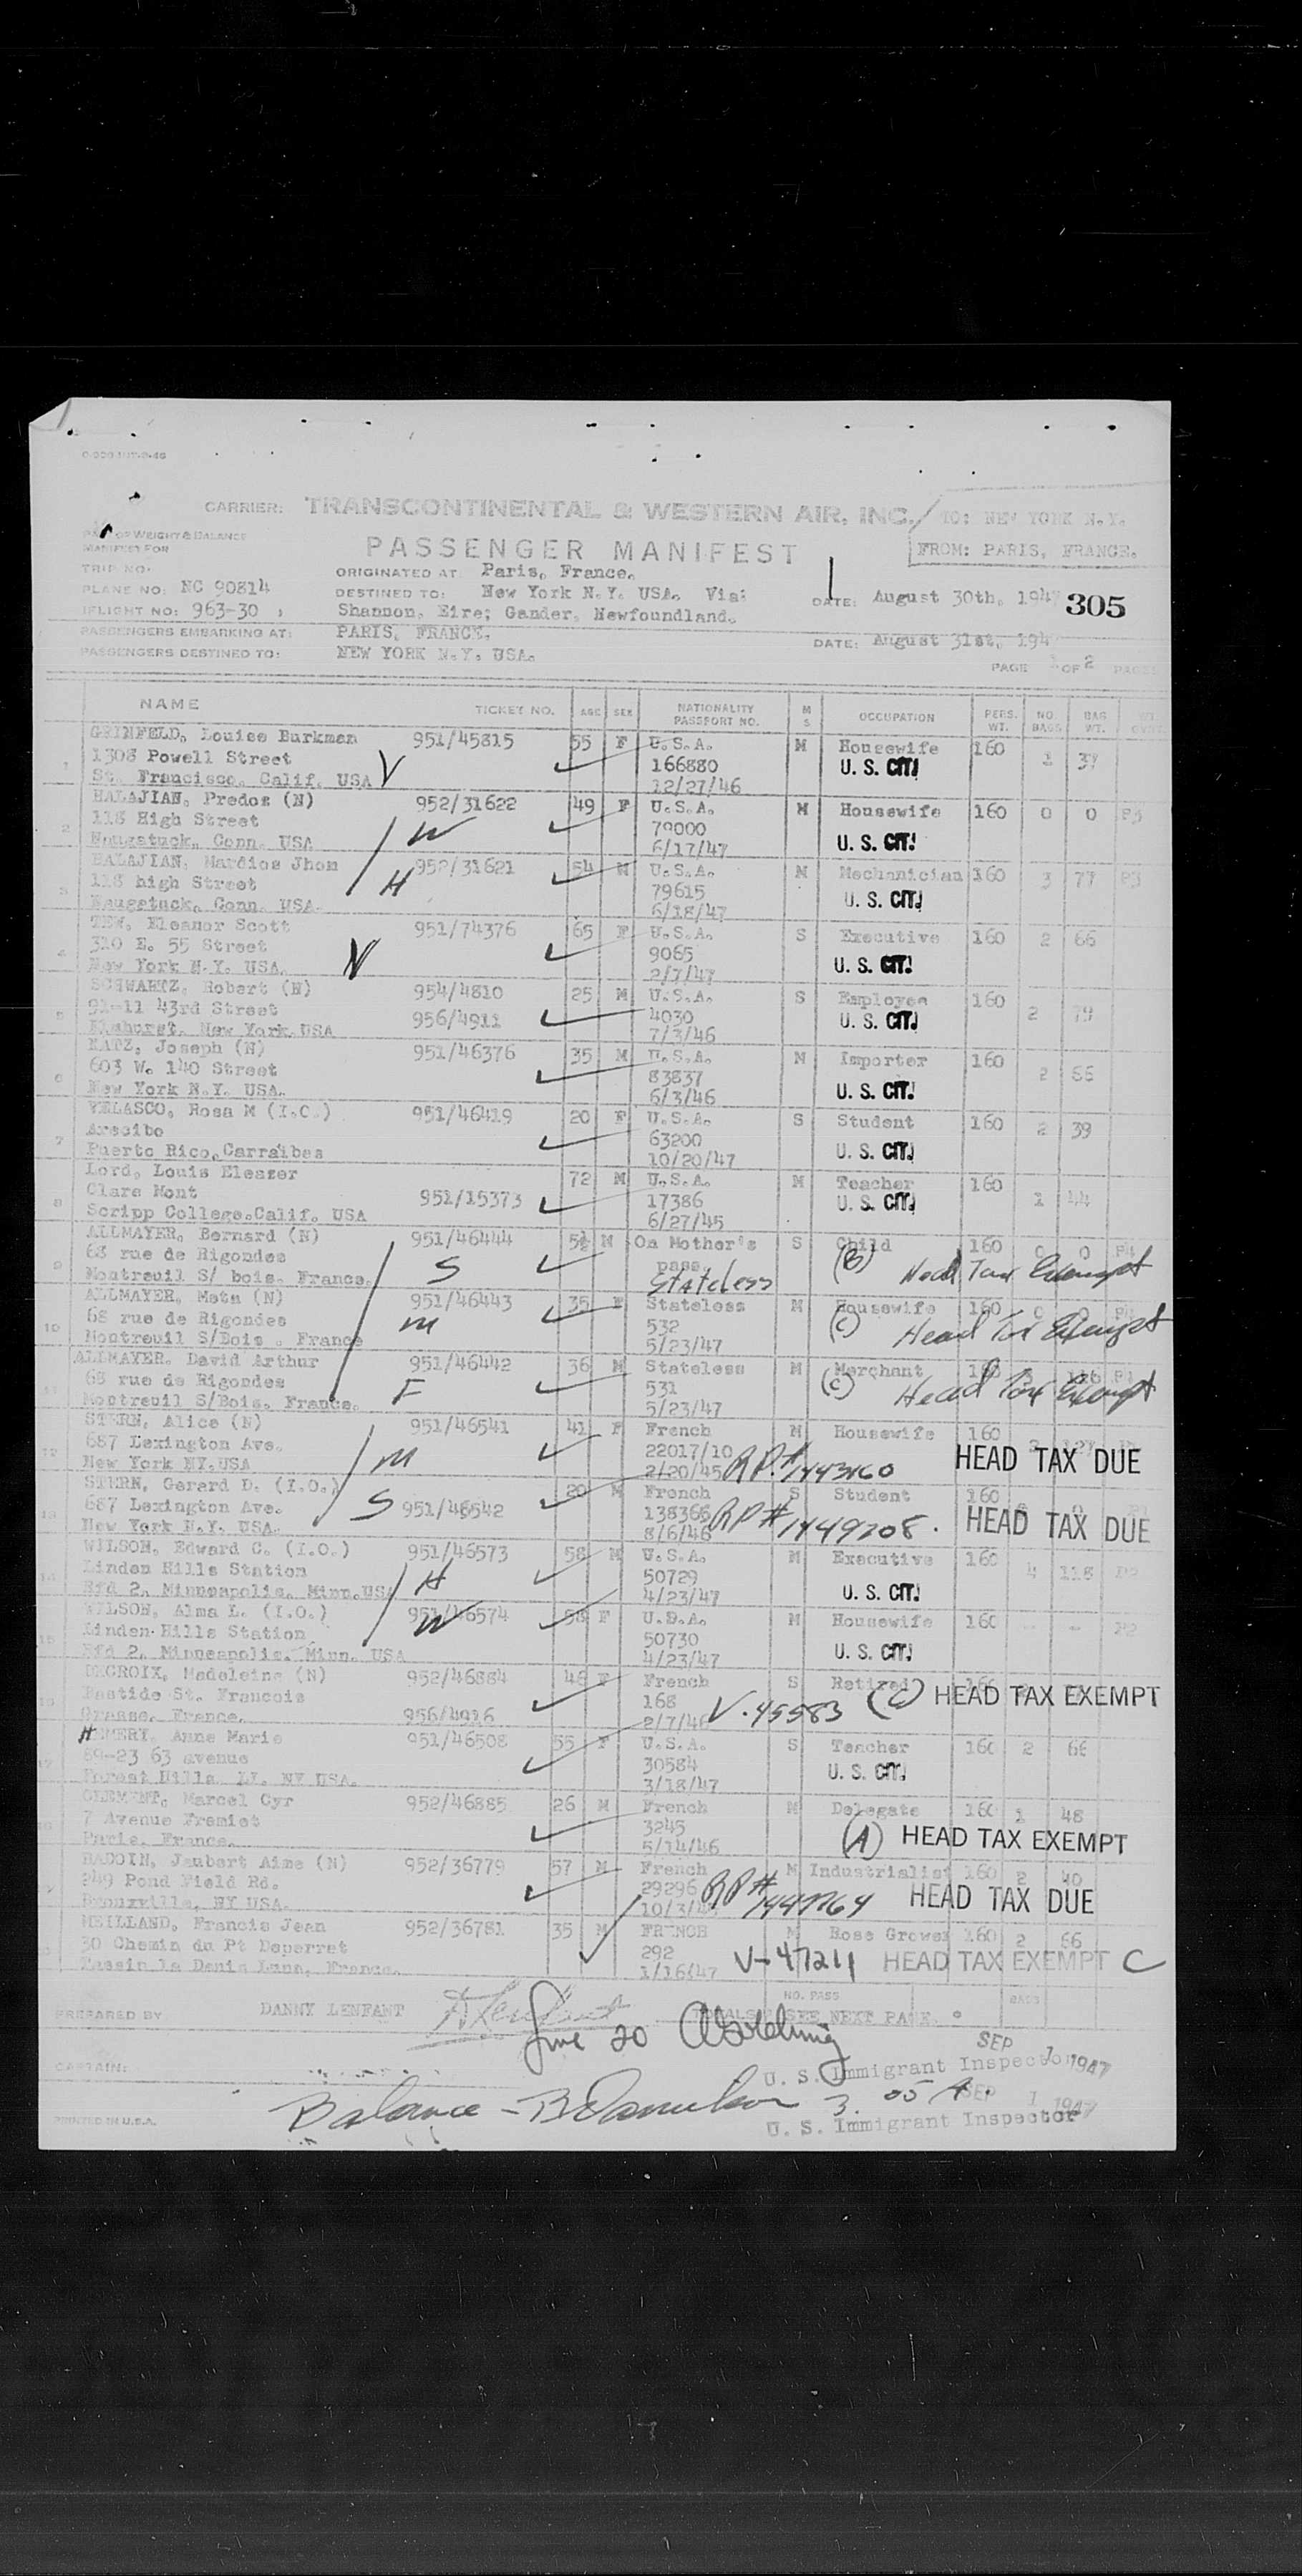 CARRIER: TRANSCONTINENTAL & WESTERN AIR, INC. TO: NEW YORK N.Y.
OF WEIGHT & BALANCE
MANIFEST FOR
PASSENGER MANIFEST FROM: PARIS, FRANCE.
TRIP NO. ORIGINATED AT Paris, France.
PLANE NO: NC 90814 DESTINED TO: New York N.Y. USA. Via: DATE: August 30th, 194 305
FLIGHT NO: 963-30 Shannon, Eire; Gander, Newfoundland.
PASSENGERS EMBARKING AT: PARIS, FRANCE. DATE: August 31st, 194
PASSENGERS DESTINED TO: NEW YORK N.Y. USA. PAGE 1 OF 2 PAGES
NAME TICKET NO. AGE SEX NATIONALITY PASSPORT NO. M S OCCUPATION PERS. WT. NO. BAGS BAG WT.
GRINFELD, Louise Burkman 951/45815 55 F U.S.A. M Housewife 160 1
1 1308 Powell Street 166880 U. S. CIT.
St. Francisco, Calif. USA V 12/27/46
HALAJIAN, Predos (N) 952/31622 49 F U.S.A. M Housewife 160 0 0
2 118 High Street W 79000
Naugatuck, Conn. USA 6/17/47 U. S. CIT.
HALAJIAN, Mardios Jhon 952/31621 54 M U.S.A. M Mechanician 160 3 77
3 118 high Street H 79615
Naugatuck, Conn. USA. 6/18/47 U. S. CIT.
TEW, Eleanor Scott 951/74376 65 F U.S.A. S Executive 160 2 66
4 310 E. 55 Street 9065
New York N.Y. USA. 2/7/47 U. S. CIT.
SCHWARTZ, Robert (N) 954/4810 25 M U.S.A. S Employee 160
5 91-11 43rd Street 956/4911 4030 U. S. CIT. 2 79
Elmhurst, New York USA 7/3/46
KATZ, Joseph (N) 951/46376 35 M U.S.A. M Importer 160
6 603 W. 140 Street 83837 2
New York N.Y. USA. 6/3/46 U. S. CIT.
VELASCO, Rosa M (I.C.) 951/46419 20 F U.S.A. S Student 160 2 39
7 Arecibo 63200
Puerto Rico, Carraibes 10/20/47 U. S. CIT.
Lord, Louis Eleazer 72 M U.S.A. M Teacher 160
8 Clare Mont 951/15373 17386 U. S. CIT. 1 44
Scripp College.Calif. USA 6/27/45
ALLMAYER, Bernard (N) 951/46444 5½ M On Mother's S Child 160 0 0
9 68 rue de Rigondes S pass. (B) Head Tax Exempt
Montreuil S/ bois. France. Stateless
ALLMAYER, Meta (N) 951/46443 35 F Stateless M Housewife 160 0 0
10 68 rue de Rigondes M 532 (C) Head Tax Exempt
Montreuil S/Bois . France 5/23/47
ALLMAYER, David Arthur 951/46442 36 M Stateless M Merchant
11 68 rue de Rigondes F 531 (C) Head Tax Exempt
Montreuil S/Bois. France. 5/23/47
STERN, Alice (N) 951/46541 41 F French M Housewife 160
12 687 Lexington Ave. M 22017/10 HEAD TAX DUE
New York NY.USA 2/20/45 RP.# 1443460
STERN, Gerard D. (I.O.) 20 M French S Student 160
13 687 Lexington Ave. S 951/46542 138366 HEAD TAX DUE
New York N.Y. USA. 8/6/46 RP# 1449208.
WILSON, Edward C. (I.O.) 951/46573 58 M U.S.A. M Executive 160 4 118
14 Linden Hills Station H 50729
Rfd 2. Minneapolis, Minn.USA 4/23/47 U. S. CIT.
WILSON, Alma L. (I.O.) 951/46574 58 F U.S.A. M Housewife 160 - -
15 Linden Hills Station W 50730
Rfd 2. Minneapolis. Minn. USA 4/23/47 U. S. CIT.
DECROIX, Madeleine (N) 952/46884 48 F French S Retired 160
16 Bastide St. Francois 168 (C) HEAD TAX EXEMPT
Grasse, France. 956/4916 2/7/46 V.45583
HEMERY, Anne Marie 951/46508 55 F U.S.A. S Teacher 160 2 66
17 69-23 63 avenue 30584 U. S. CIT.
Forest Hills. LI. NY USA. 3/18/47
CLEMENT, Marcel Cyr 952/46885 26 M French M Delegate 160 1 48
18 7 Avenue Fremiet 3245 (A) HEAD TAX EXEMPT
Paris. France. 5/14/46
BADOIN, Jaubert Aime (N) 952/36779 57 M French M Industrialist 160 2 40
249 Pond Field Rd. 29296 RP# 1447764 HEAD TAX DUE
Bronxville, NY USA. 10/3/
MEILLAND, Francis Jean 952/36781 35 M FRENCH M Rose Grower 160 2 66
30 Chemin du Pt Deperret 292 V-47211 HEAD TAX EXEMPT C
Tassin la Demie Lune, France. 1/16/47
PREPARED BY DANNY LENFANT TOTALS NO. PASS SEE NEXT PAGE. BAGS
Line 20
SEP 1 1947
CAPTAIN: U. S. Immigrant Inspector
Balance - 3.05 A. SEP 1 1947
PRINTED IN U.S.A. U. S. Immigrant Inspector